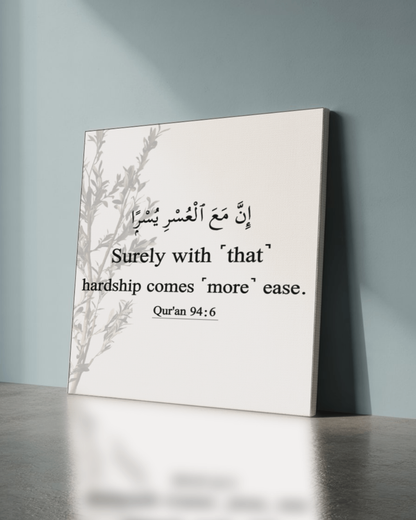 إِنَّ مَعَ ٱلْعُسْرِ يُسْرًا
Surely with ˹that˺
hardship comes ˹more˺ ease.
Qur'an 94:6